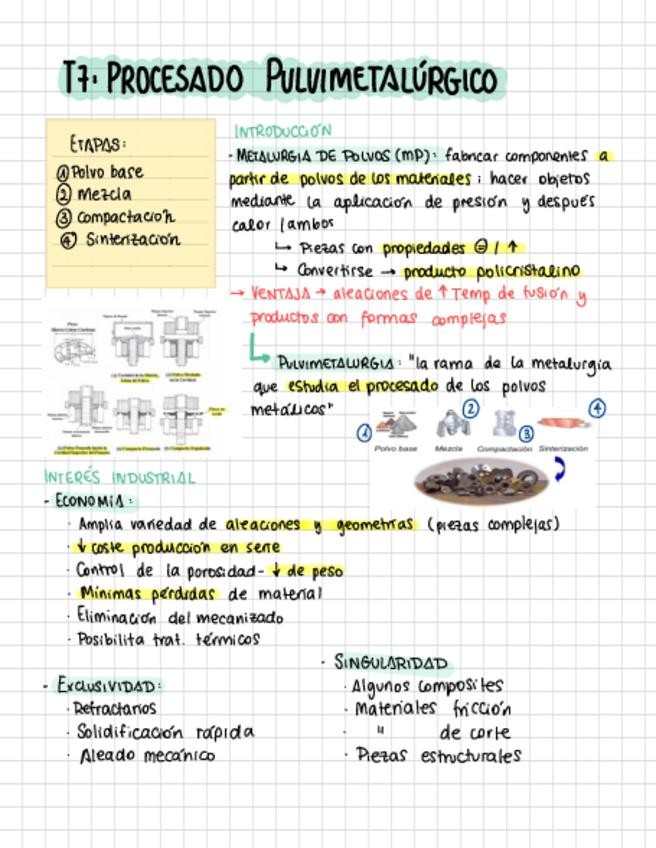 T7: PROCESADO PULVIMETALÚRGICO
ETAPAS:
① Polvo base
② Mezcla
③ Compactación
④ Sinterización
INTRODUCCIÓN
- METALURGIA DE POLVOS (MP): fabricar componentes a
partir de polvos de los materiales; hacer objetos
mediante la aplicación de presión y después
calor / ambos
↳ Piezas con propiedades = / ↑
↳ Convertirse → producto policristalino
→ VENTAJA → aleaciones de ↑ Temp de fusión y
productos con formas complejas
↳ PULVIMETALURGIA: "la rama de la metalurgia
que estudia el procesado de los polvos
metálicos"
① ② ③ ④
Polvo base Mezcla Compactación Sinterización
INTERÉS INDUSTRIAL
- ECONOMÍA:
· Amplia variedad de aleaciones y geometrías (piezas complejas)
· ↓ coste producción en serie
· Control de la porosidad - ↓ de peso
· Mínimas pérdidas de material
· Eliminación del mecanizado
· Posibilita trat. térmicos
- EXCLUSIVIDAD:
· Refractarios
· Solidificación rápida
· Aleado mecánico
· SINGULARIDAD
· Algunos composites
· Materiales fricción
· " de corte
· Piezas estructurales